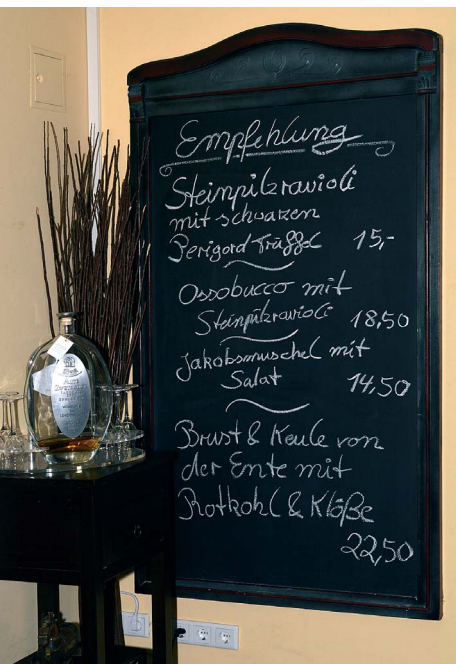 Empfehlung
Steinpilzravioli
mit schwarzen
Perigord-Trüffel 15,-
Ossobucco mit
Steinpilzravioli 18,50
Jakobsmuschel mit
Salat 14,50
Brust & Keule von
der Ente mit
Rotkohl & Klöße
22,50